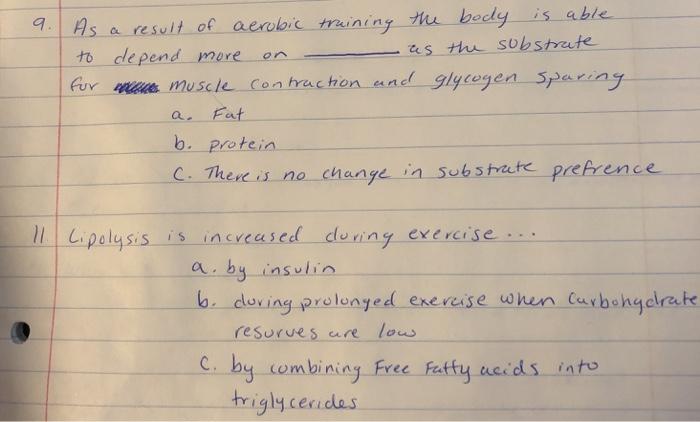 9. As a result of aerobic training the body is able
to depend more on ________ as the substrate
for muscle contraction and glycogen sparing
a. Fat
b. protein
C. There is no change in substrate prefrence
11 Lipolysis is increased during exercise...
a. by insulin
b. during prolonged exercise when Carbohydrate
resurves are low
C. by combining Free Fatty acids into
triglycerides